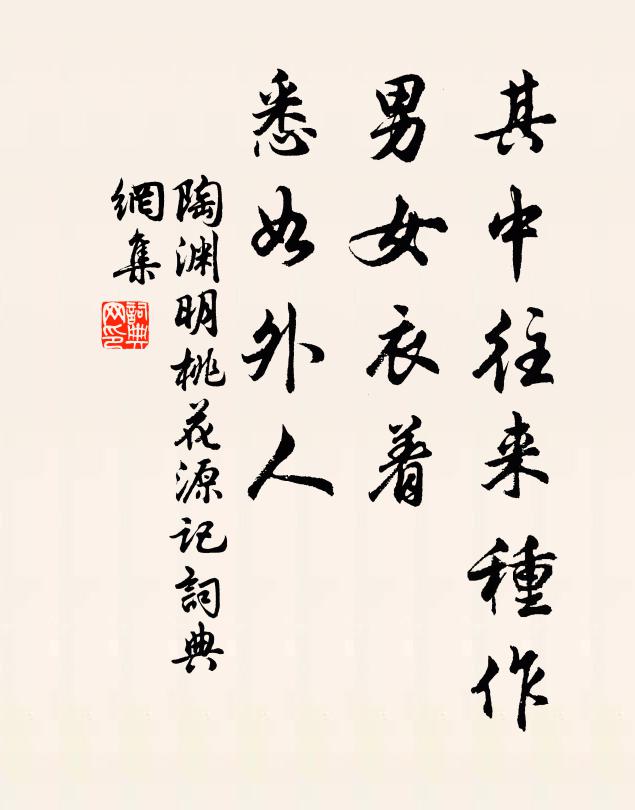 其中往来種作
男女衣着
悉如外人
陶渊明桃花源记詞典
網集
詞典网印